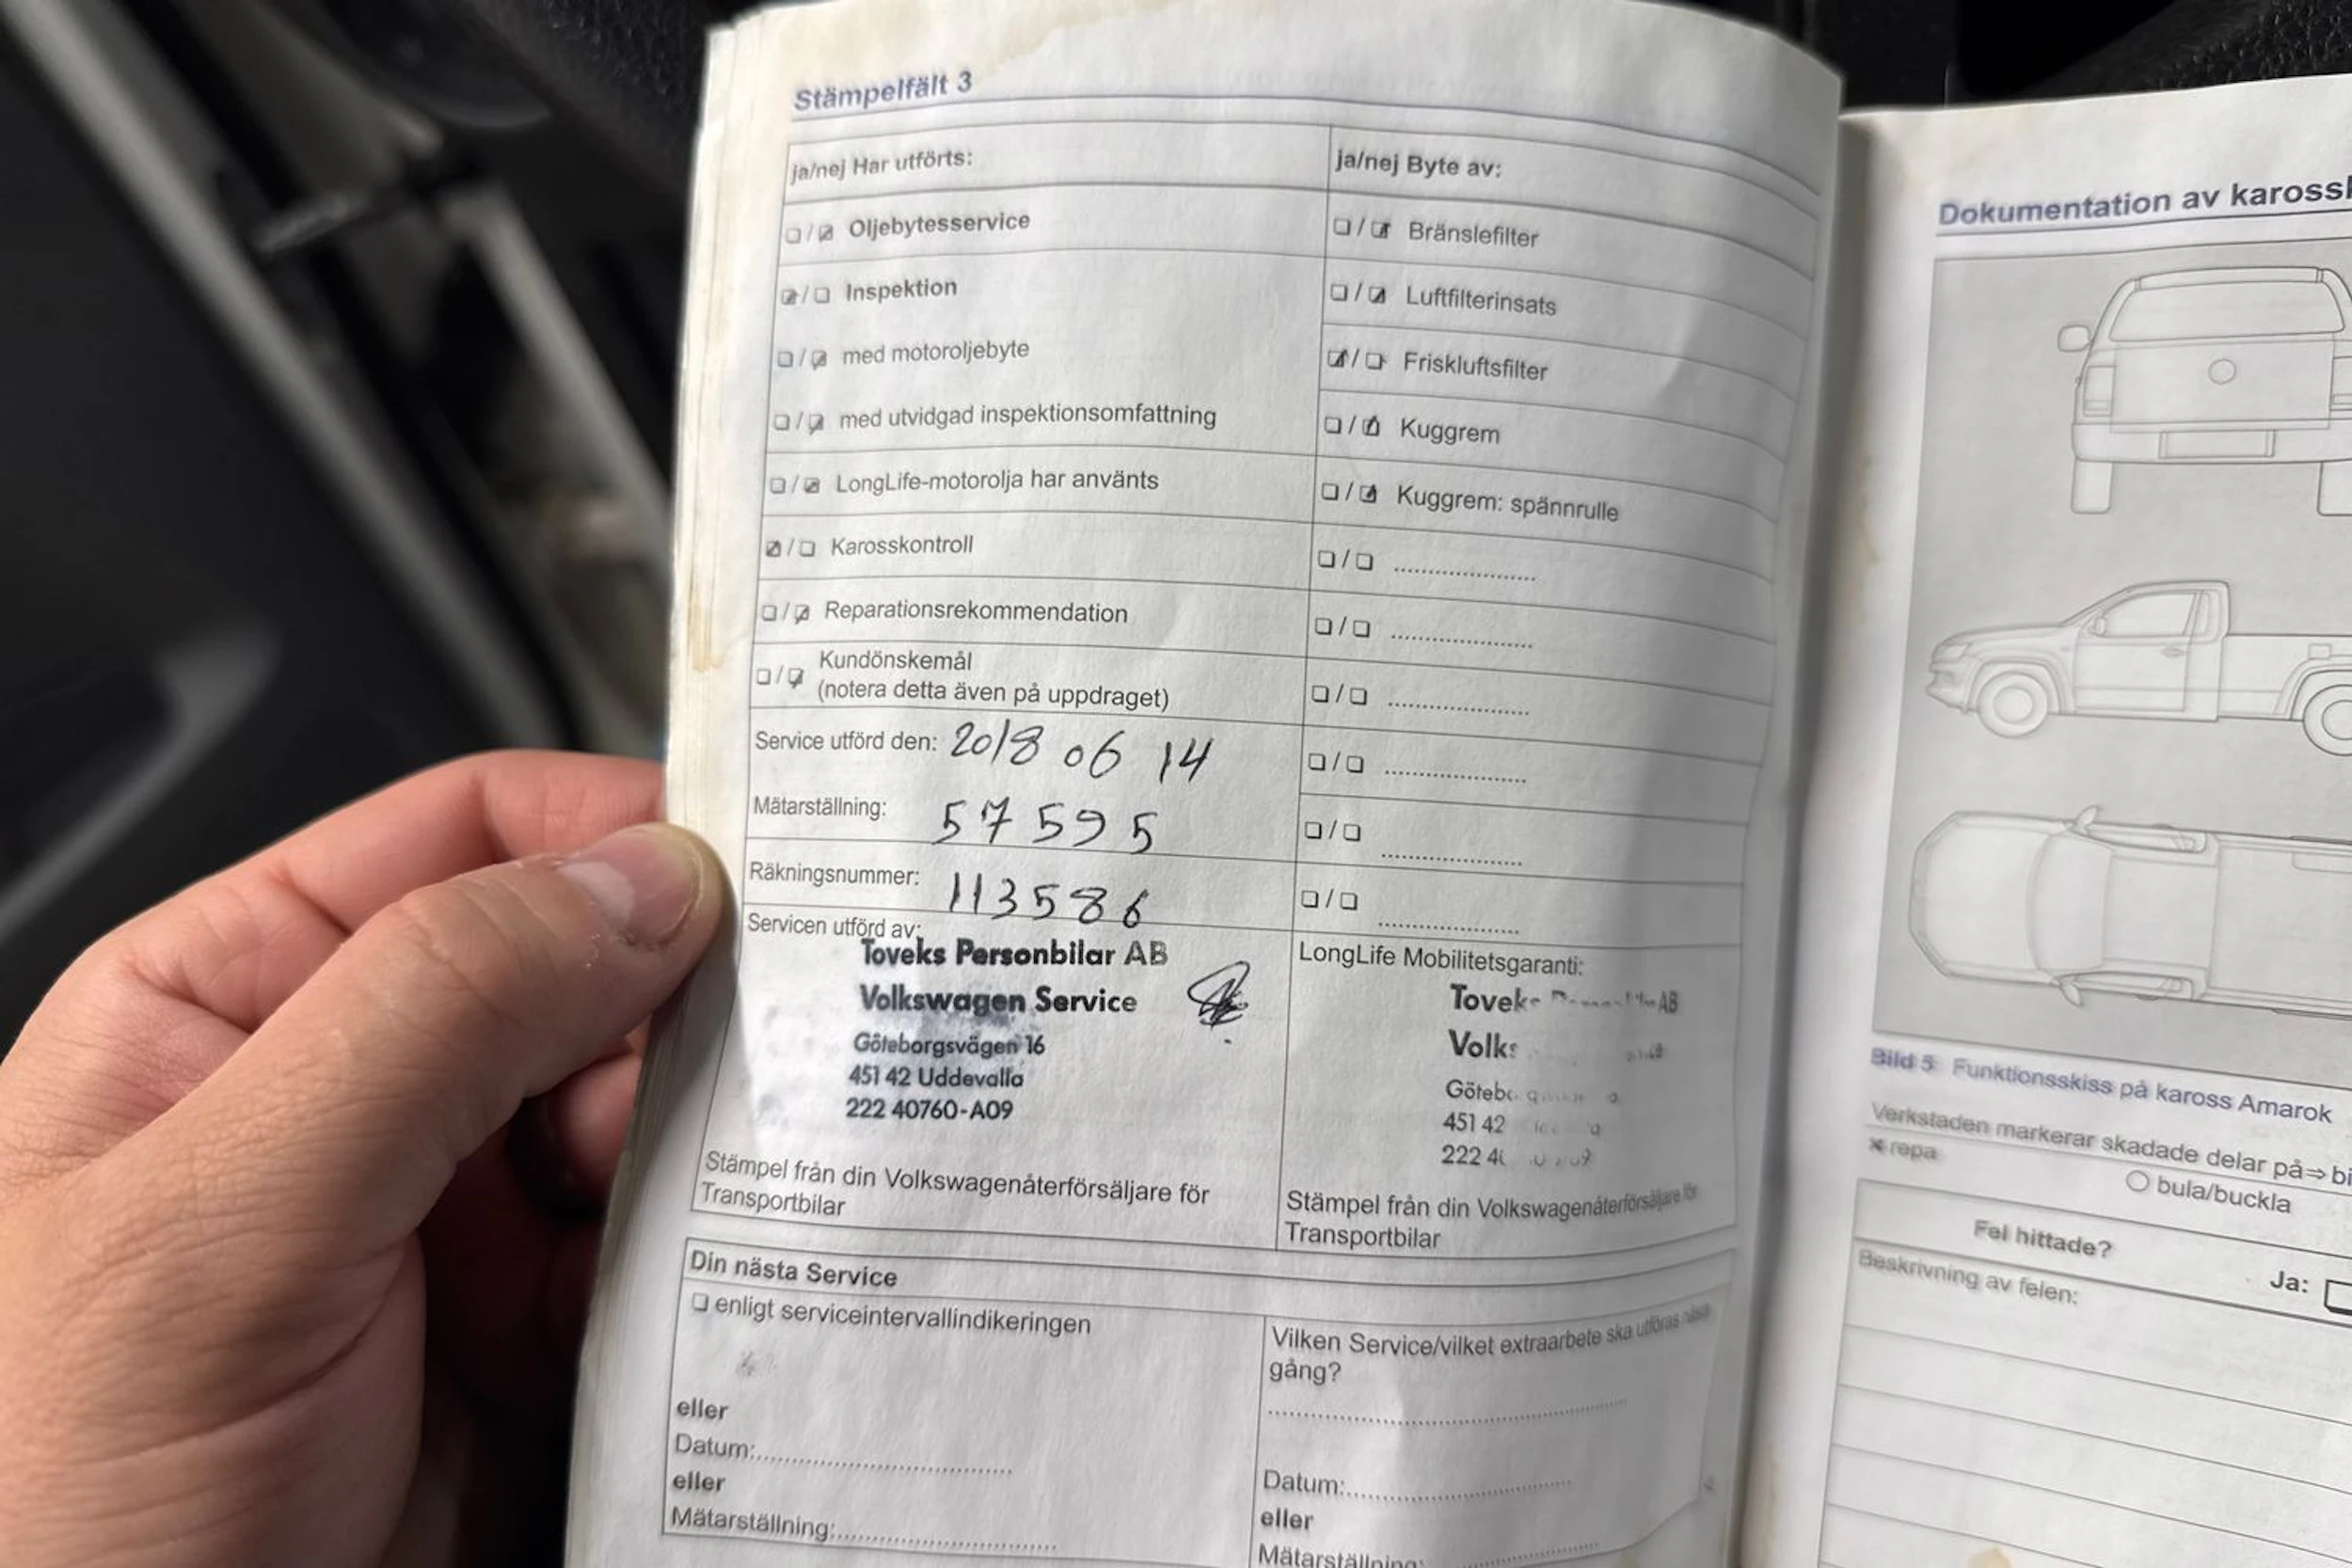 Stämpelfält 3
ja/nej Har utförts:
☐/☑ Oljebytesservice
☑/☐ Inspektion
☐/☑ med motoroljebyte
☐/☑ med utvidgad inspektionsomfattning
☐/☑ LongLife-motorolja har använts
☑/☐ Karosskontroll
☐/☑ Reparationsrekommendation
☐/☑ Kundönskemål
(notera detta även på uppdraget)
Service utförd den: 2018 06 14
Mätarställning: 57595
Räkningsnummer: 113586
Servicen utförd av:
Toveks Personbilar AB
Volkswagen Service
Göteborgsvägen 16
451 42 Uddevalla
222 40760-A09
Stämpel från din Volkswagenåterförsäljare för
Transportbilar
ja/nej Byte av:
☐/☑ Bränslefilter
☐/☑ Luftfilterinsats
☑/☐ Friskluftsfilter
☐/☑ Kuggrem
☐/☑ Kuggrem: spännrulle
☐/☐ ....................
☐/☐ ....................
☐/☐ ....................
☐/☐ ....................
☐/☐ ....................
☐/☐ ....................
LongLife Mobilitetsgaranti:
AB
451 42
222
Stämpel från din Volkswagenåterförsäljare för
Transportbilar
Din nästa Service
☐ enligt serviceintervallindikeringen
eller
Datum:....................
eller
Mätarställning:....................
Vilken Service/vilket extraarbete ska utföras nästa
gång?
....................
Datum:....................
eller
Mätarställning:....................
Dokumentation av
Bild 5 Funktionsskiss på kaross Amarok
Verkstaden markerar skadade delar på⇒
× repa
○ bula/buckla
Fel hittade?
Ja: ☐
Beskrivning av felen: